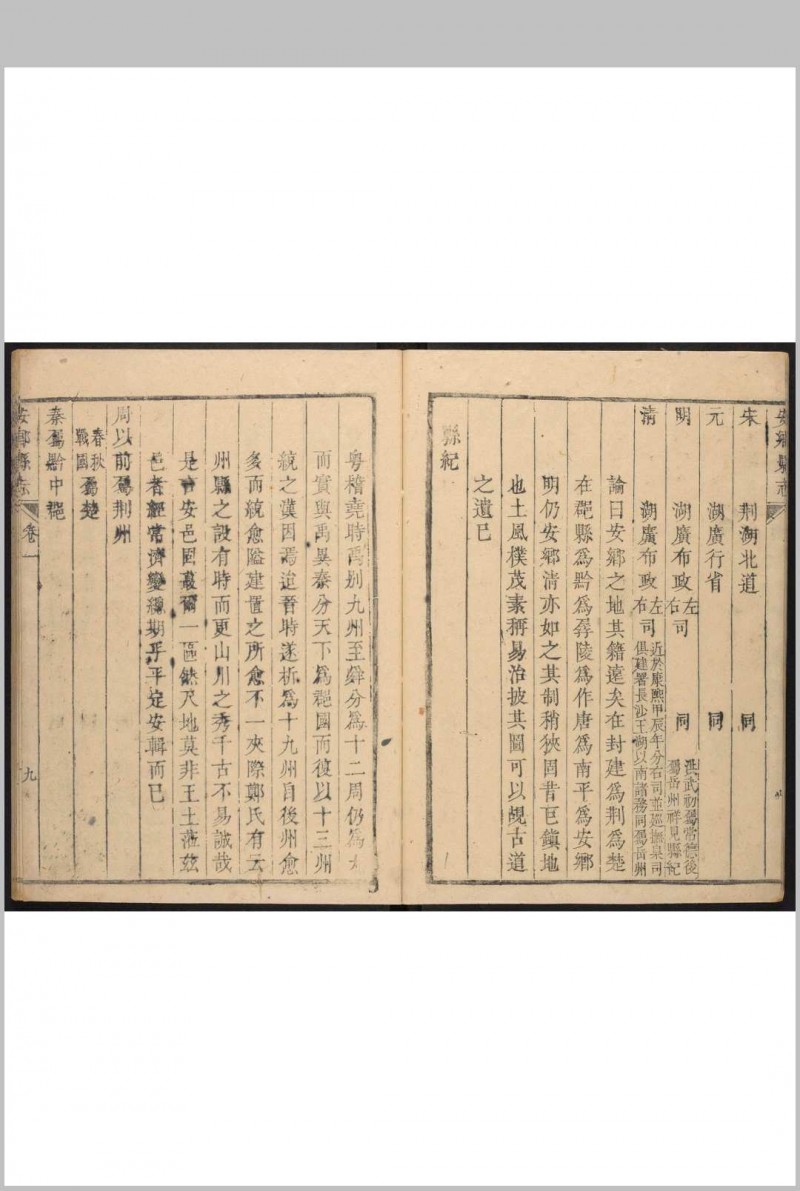 安鄉縣志
宋 荆湖北道 同
元 湖廣行省 同
明 湖廣布政左右司 同 洪武初屬常德後屬岳州祥見縣紀
清 湖廣布政左右司 近於康熙甲辰年分右司並廵撫臬司俱建署長沙王湖以南諸務同屬岳州
論曰安鄉之地其籍遠矣在封建為荆為楚
在郡縣為黔為孱陵為作唐為南平為安鄉
明仍安鄉清亦如之其制稍狹固昔巨鎮地
也土風樸茂素稱易治披其圖可以覘古道
之遺巳
縣紀
粤稽堯時禹别九州至舜分為十二周仍為九
而實與禹異秦分天下為郡国而復以十三州
統之漢因焉迨晉時遂析為十九州自後州愈
多而統愈隘建置之所愈不一夾際鄭氏有云
州縣之設有時而更山川之秀千古不易誠哉
是言安邑固蕞爾一區然尺地莫非王土蒞玆
邑者經常濟變總期乎平定安輯而已
周以前屬荆州
春秋戰國屬楚
秦屬黔中郡
安鄉縣志 卷一 九